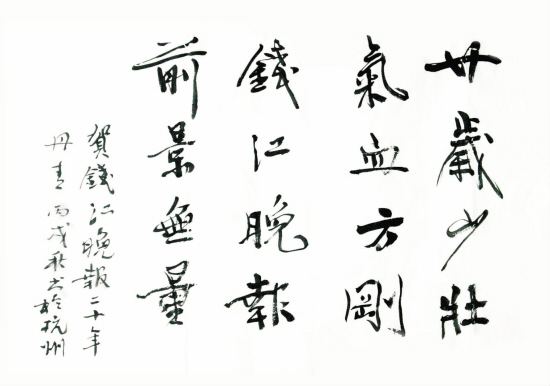 廿歲少壯
氣血方剛
錢江晚報
前景無量
賀錢江晚報二十年
丹青丙戌秋书於杭州